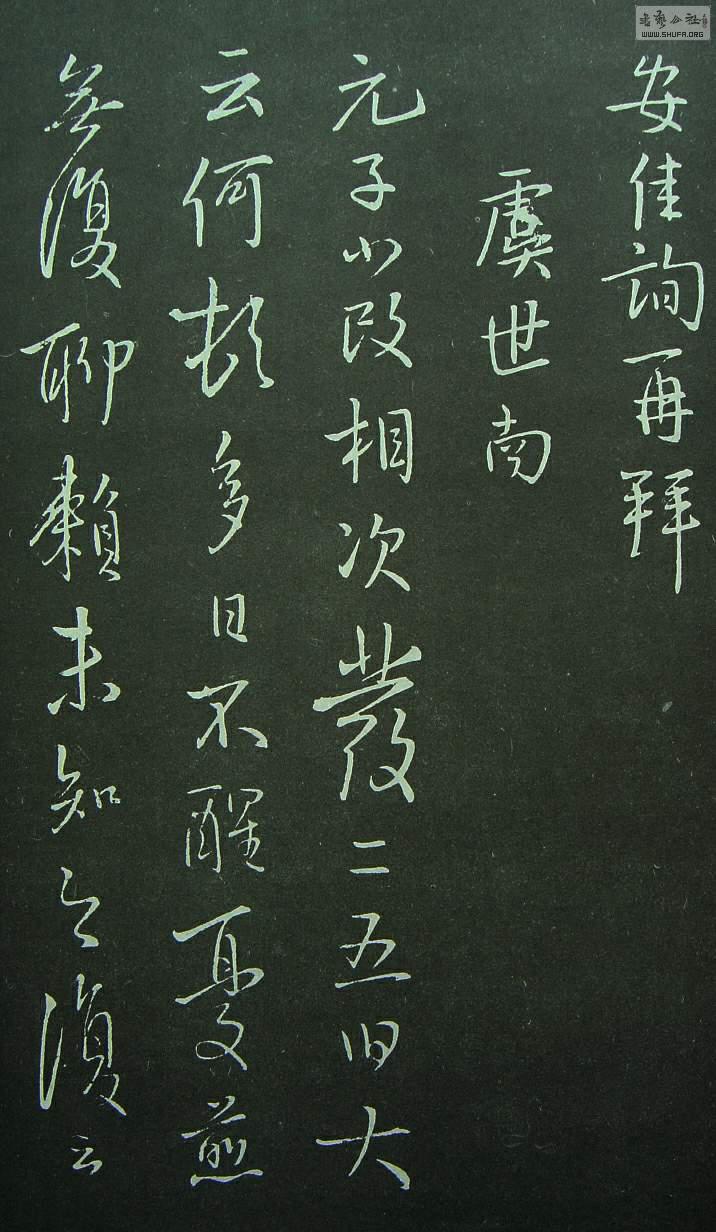 安佳詢再拜
虞世南
元子小改相次發二五大
云何頓多日不醒憂煎
無復聊賴未知今復云
書藝公社
WWW.SHUFA.ORG